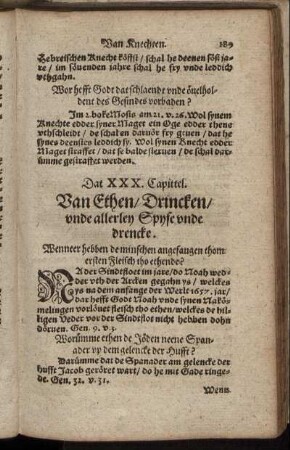 Van Knechten. 189
Hebreischen Knecht köffst / schal he deenen söß ja-
re / im söuenden jahre schal he fry vnde leddich
vthgahn.
Wor hefft Godt dat schlaendt vnde öuelhol-
dent des Gesindes vorbaden?
Im 2. boke Mosis am 21. v. 26. Wol synem
Knechte edder syner Maget ein Oge edder thene
vthschleidt / de schal en daruör fry geuen / dat he
synes deenstes leddich sy. Wol synen Knecht edder
Maget straffet / dat se balde steruen / de schal dar-
ümme gestraffet werden.
Dat XXX. Capittel.
Van Ethen / Drincken /
vnde allerley Spyse vnde
drencke.
Wenneer hebben de minschen angefangen thom
ersten Fleisch tho ethende?
NA der Sindtfloet im jare / do Noah wed-
der vth der Arcken gegahn ys / welckes
ys na dem anfange der Werlt 1657. jar /
dar hefft Godt Noah vnde synen Nakö-
melingen vorlöuet fleisch tho ethen / welckes de hil-
ligen Veder vor der Sindtflot nicht hebben dohn
döruen. Gen. 9. v. 3.
Worümme ethen de Jöden neene Span-
ader vp dem gelencke der Hufft?
Darümme dat de Spanader am gelencke der
hufft Jacob geröret wart / do he mit Gade ringe-
de. Gen. 32. v. 31.
Wenn